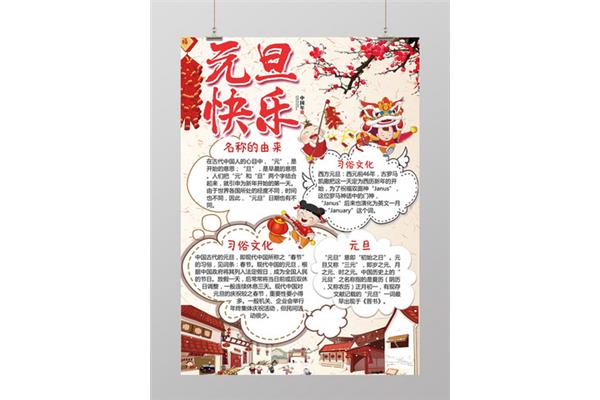 元旦
快乐
中国年
名称的由来
在古代中国人的心目中，“元”，是
开始的意思；“旦”，是早晨的意思
。人们把“元”和“旦”两个字结合
起来，就引申为新年开始的第一天。
由于世界各国所处的经度不同，时间
也不同，因此，“元旦”日期也有不
同。
习俗文化
西方元旦：西元前46年，古罗马
凯撒把这一天定为西历新的开
始，为了祝福双面神“Janus”，
这位罗马神话中的门神，
“Janus”后来也演化为英文一月
“January”这个词。
习俗文化
中国古代的元旦，即现代中国所称之“春节”
的习俗，见词条：春节。现代中国的元旦，根
据中国政府将其列入法定假日，成为全国人民
的节日。放假一天，后常常将当日前或后双休
日调整，一般连续休息三天。现代中国对
元旦的庆祝较之春节，重要性要小得
多。一般机关、企业会举行
年终集体庆祝活动，但民间活
动很少。
元旦
“元旦”意即“初始之日”，元
旦又称“三元”，即岁之元、月
之元、时之元。中国历史上的“
元旦”之名称指的是夏历（阴历
，又称农历）正月初一，有现存
文献记载的“元旦”一词最
早出现于《晋书》。